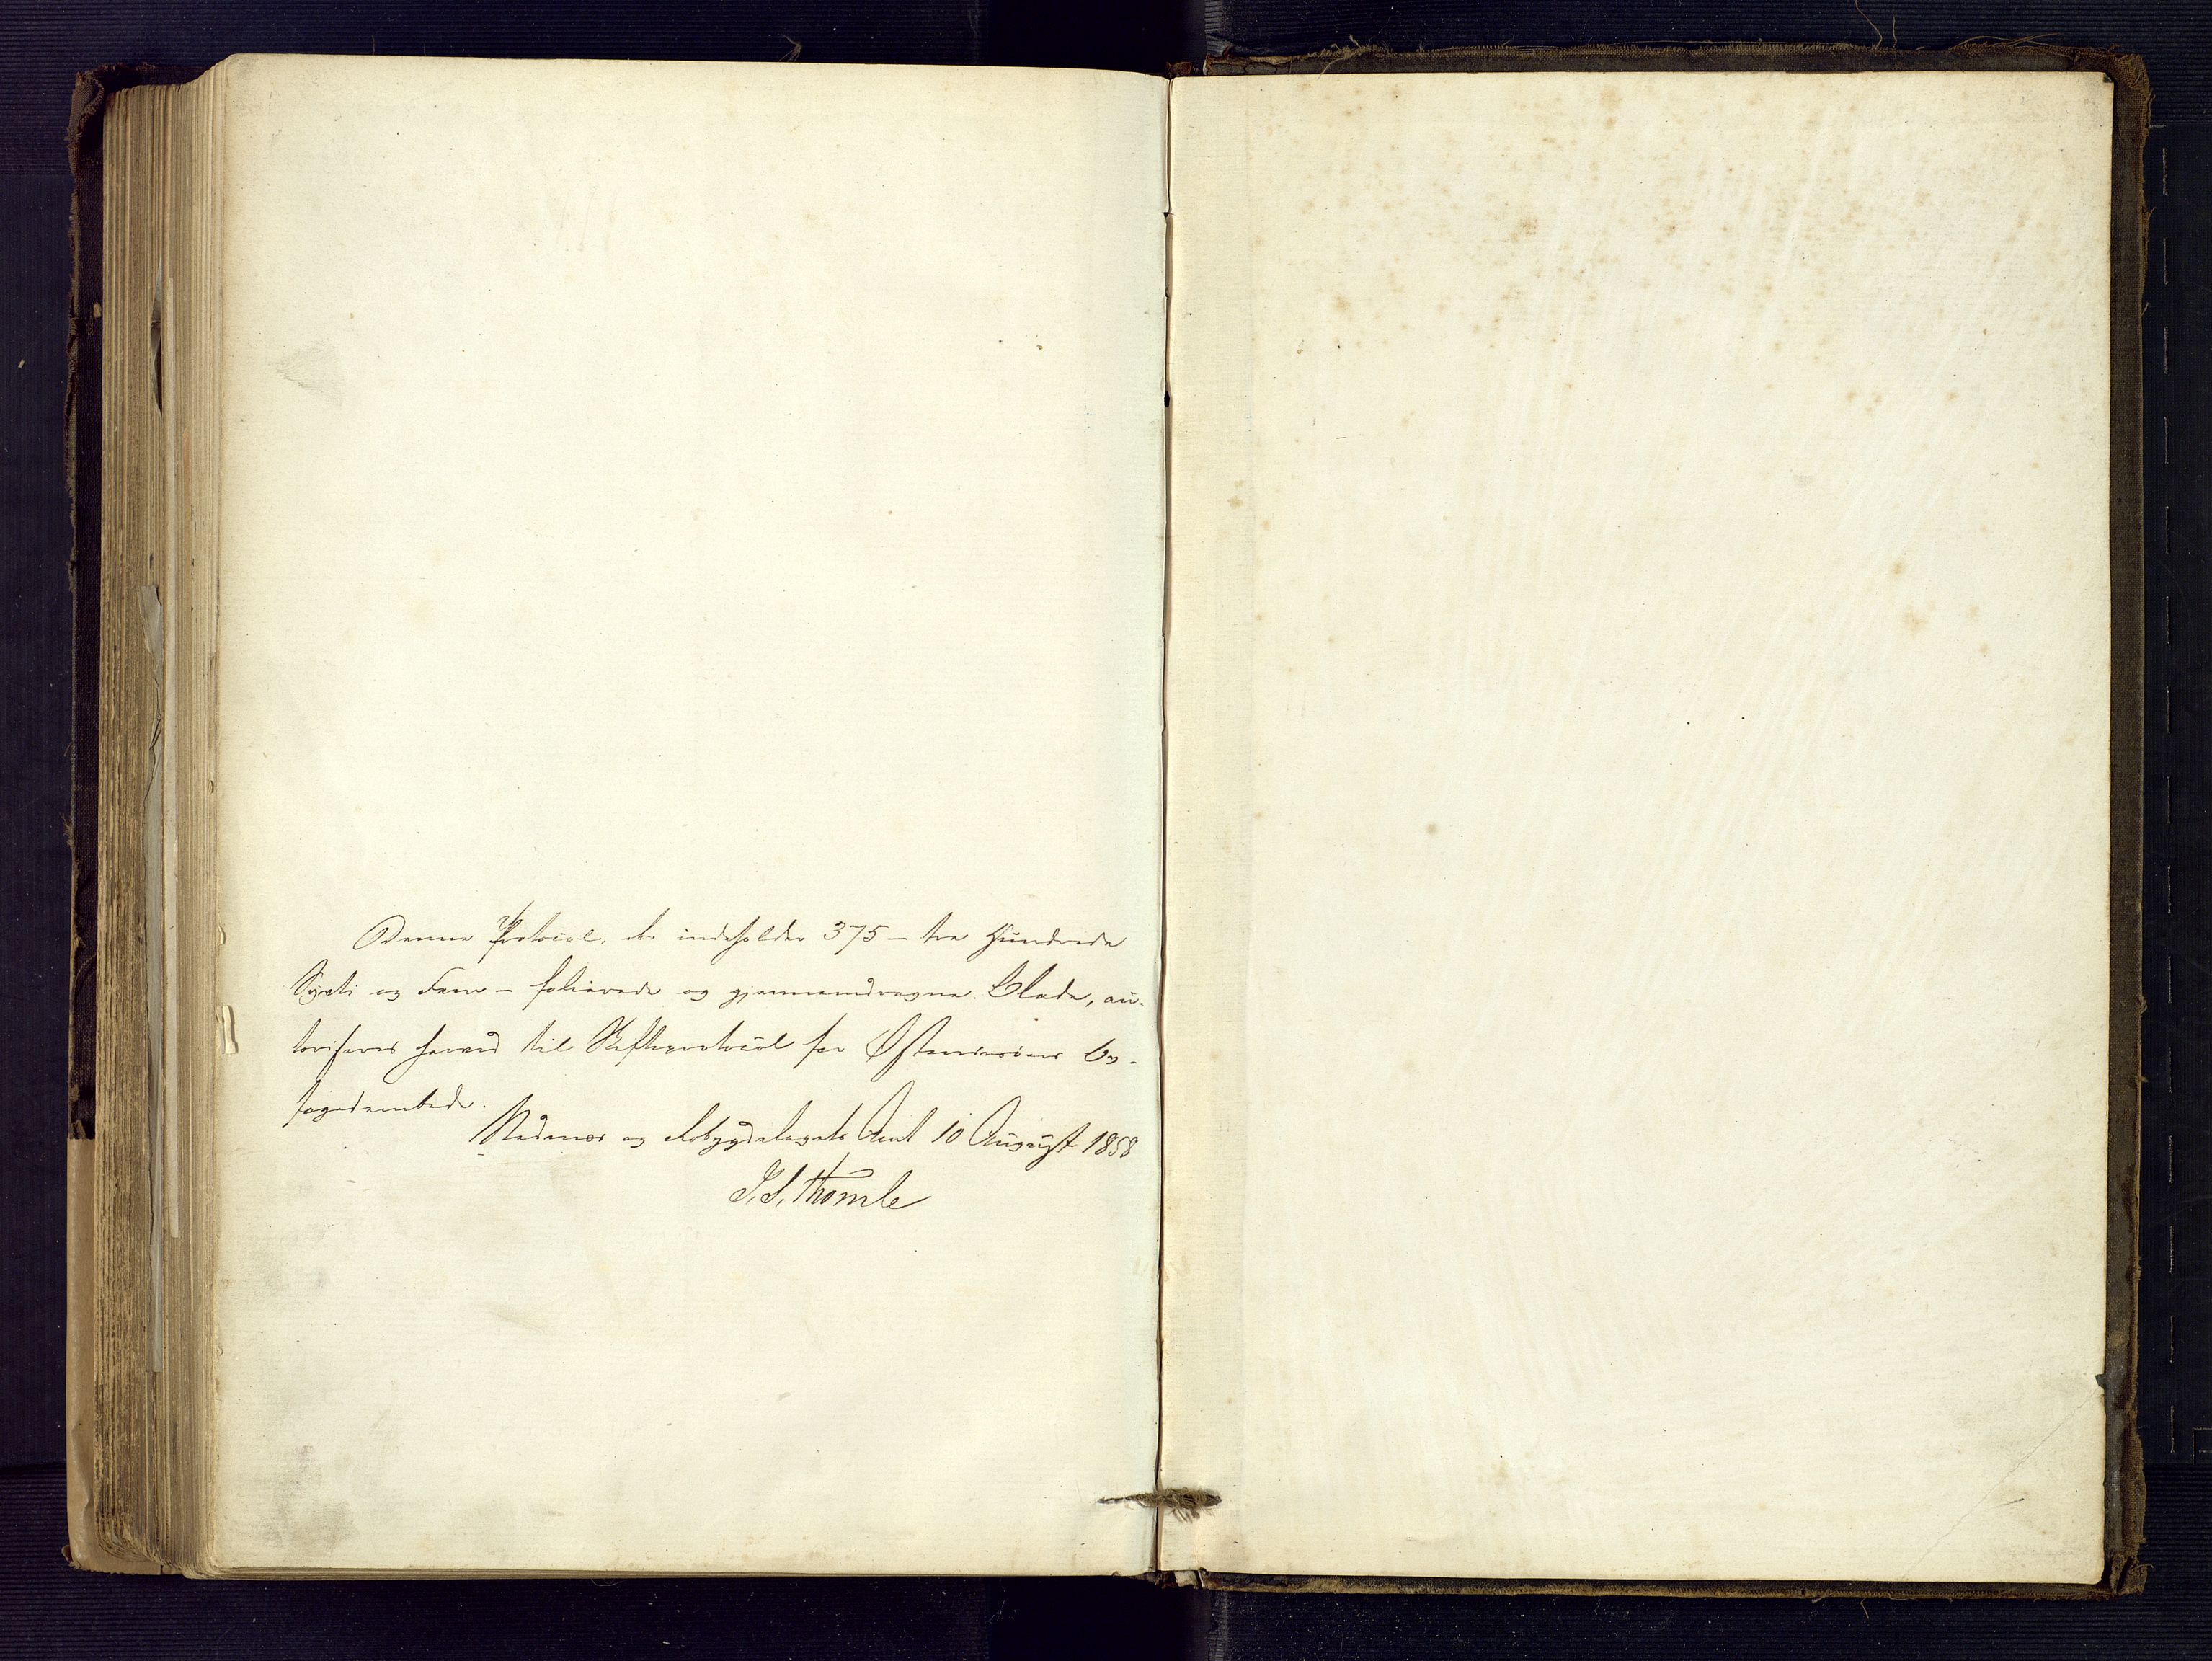 Denne Protocol, der indeholder 375 – tre Hundrede
Sytti og Fem – folierede og gjennemdragne Blade, au-
toriseres herved til Skifteprotocol for Østerriisøers By-
fogedembede.
Nedenæs og Robygdelagets Amt 10 August 1858
J. S. Thomle